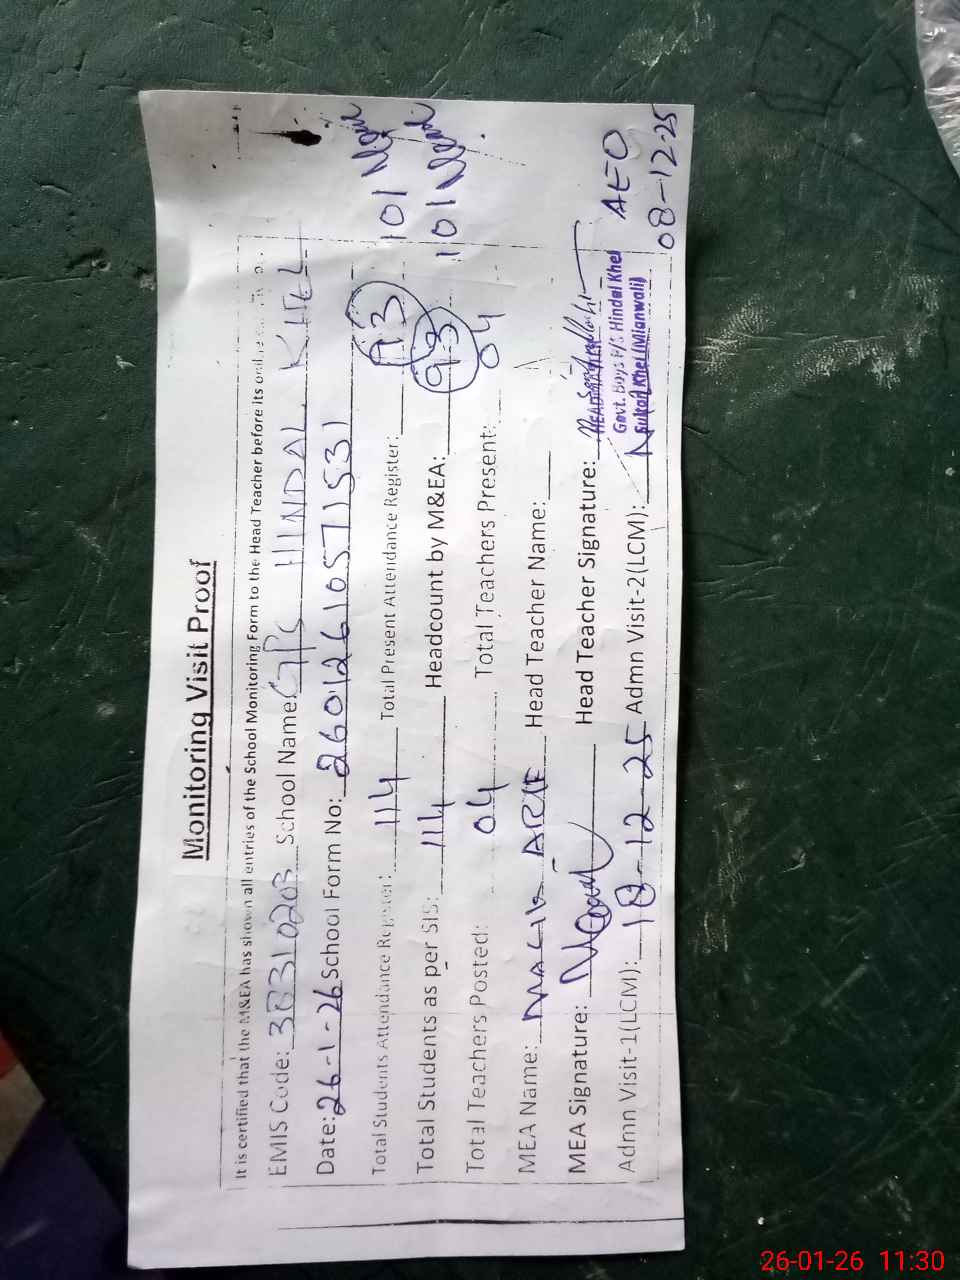 Monitoring Visit Proof
It is certified that the M&EA has shown all entries of the School Monitoring Form to the Head Teacher before its
EMIS Code: 38310203 School Name GPS HINDAL KHEL
Date: 26-1-26 School Form No: 26012610571531
Total Students Attendance Register: 114 Total Present Attendance Register: 93 101
Total Students as per SIS: 114 Headcount by M&EA: 93 101
Total Teachers Posted: 04 Total Teachers Present: 04
MEA Name: MALIK ARIF Head Teacher Name:
MEA Signature: Head Teacher Signature:
HEADMASTER
Govt. Boys P/S Hindal Khel
Sultan Khel (Mianwali)
AEO
Admn Visit-1(LCM): 18-12-25 Admn Visit-2(LCM): 08-12-25
26-01-26 11:30